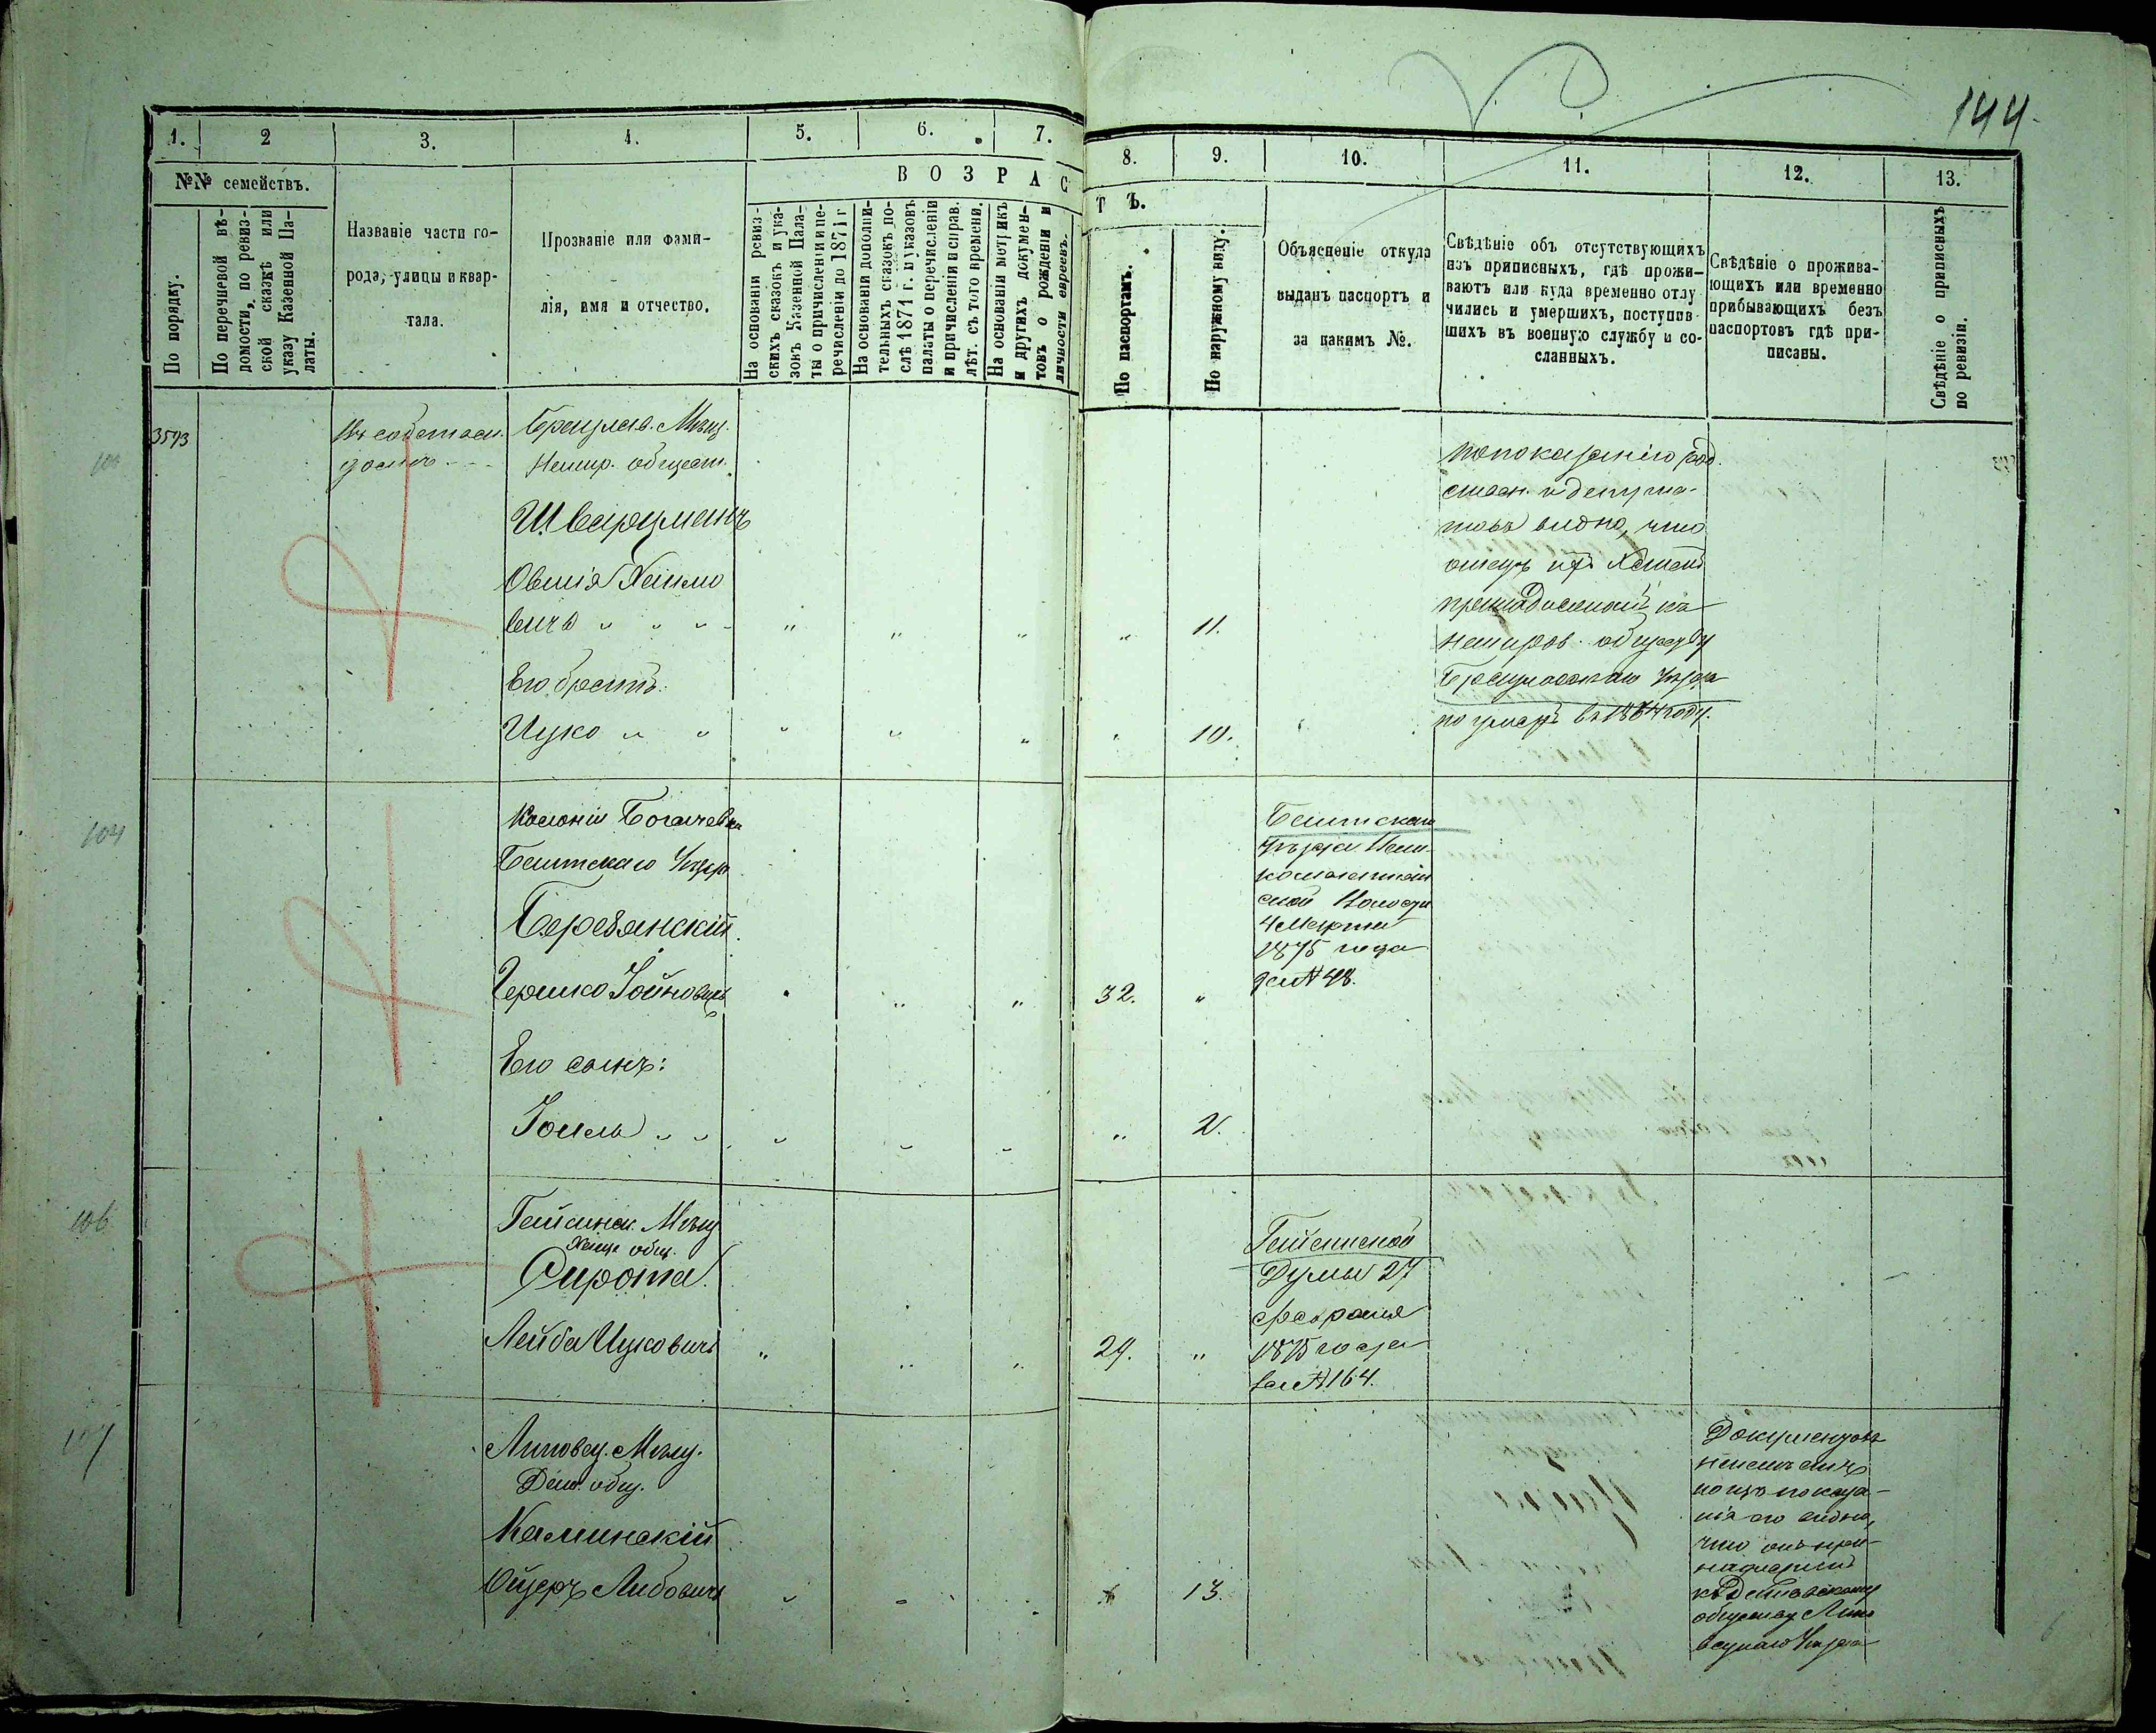 144.
1.
2
3.
4.
5.
6.
7.
8.
9.
10.
11.
12.
13.
№№ семействъ.
По порядку.
По перечневой вѣ-
домости, по ревиз-
ской сказкѣ или
указу Казенной Па-
латы.
Названіе части го-
рода, улицы и квар-
тала.
Прозваніе или фами-
лія, имя и отчество.
В О З Р А С
Т Ъ.
На основаніи ревиз-
скихъ сказокъ и ука-
зокъ Казенной Пала-
ты о причисленіи и пе-
речисленіи до 1871 г
На основаніи дополни-
тельныхъ сказокъ по-
слѣ 1871 г. и указовъ
палаты о перечисленіи
и причисленіи и справ.
лѣт. съ того времени.
На основаніи метрикъ
и другихъ докумен-
товъ о рожденіи и
личности евреевъ.
По паспортамъ.
По наружному виду.
Объясненіе откуда
выданъ паспортъ и
за какимъ №.
Свѣдѣніе объ отсутствующихъ
изъ приписныхъ, гдѣ прожи-
ваютъ или куда временно отлу
чились и умершихъ, поступив-
шихъ въ военную службу и со-
сланныхъ.
Свѣдѣніе о прожива-
ющихъ или временно
прибывающихъ безъ
паспортовъ гдѣ при-
писаны.
Свѣдѣніе о приписныхъ
по ревизіи.
3593
Брацлав. Мѣщ.
Немир. общест.
Шварцманъ
Овшія Хаимо
вичъ " " " " " " " 11.
Его братъ.
Ицко " " " " " " 10.
По показанію
и депута-
товъ видно, что
отецъ ихъ
къ
Немиров. общеву
Брацлавскаго Уѣзда
но умеръ въ 1874 году.
104
Колоніи Богачевка
Балтскаго Уѣзда
Березянскій
Гершко Іойновичъ " " 32. "
Его сынъ:
Іоиль " " " " " " 2.
Балтскаго
Уѣзда
ской Волости
4 Марта
1875 года
за № 48.
106
Гайсинск. Мѣщ
общ.
Сирота
Лейба Ицковичъ " " " 29. "
Гайсинской
Думы 27
Февраля
1875 года
за № 164.
107
Липовец. Мѣщ.
Даш. общ.
Каминскій
Ойзеръ Либовичъ " " " 13.
Документовъ
но изъ показа-
нія его видно,
что онъ при-
надлежитъ
къ Дашевскому
обществу Липо
вецкаго Уѣзда